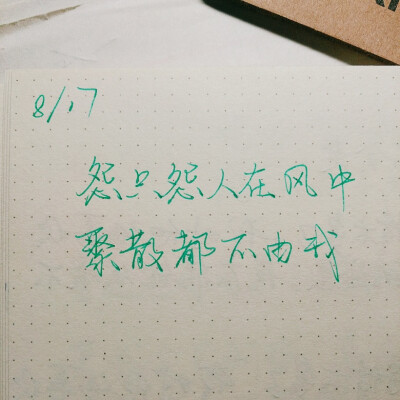 8/17
怨只怨人在风中
聚散都不由我